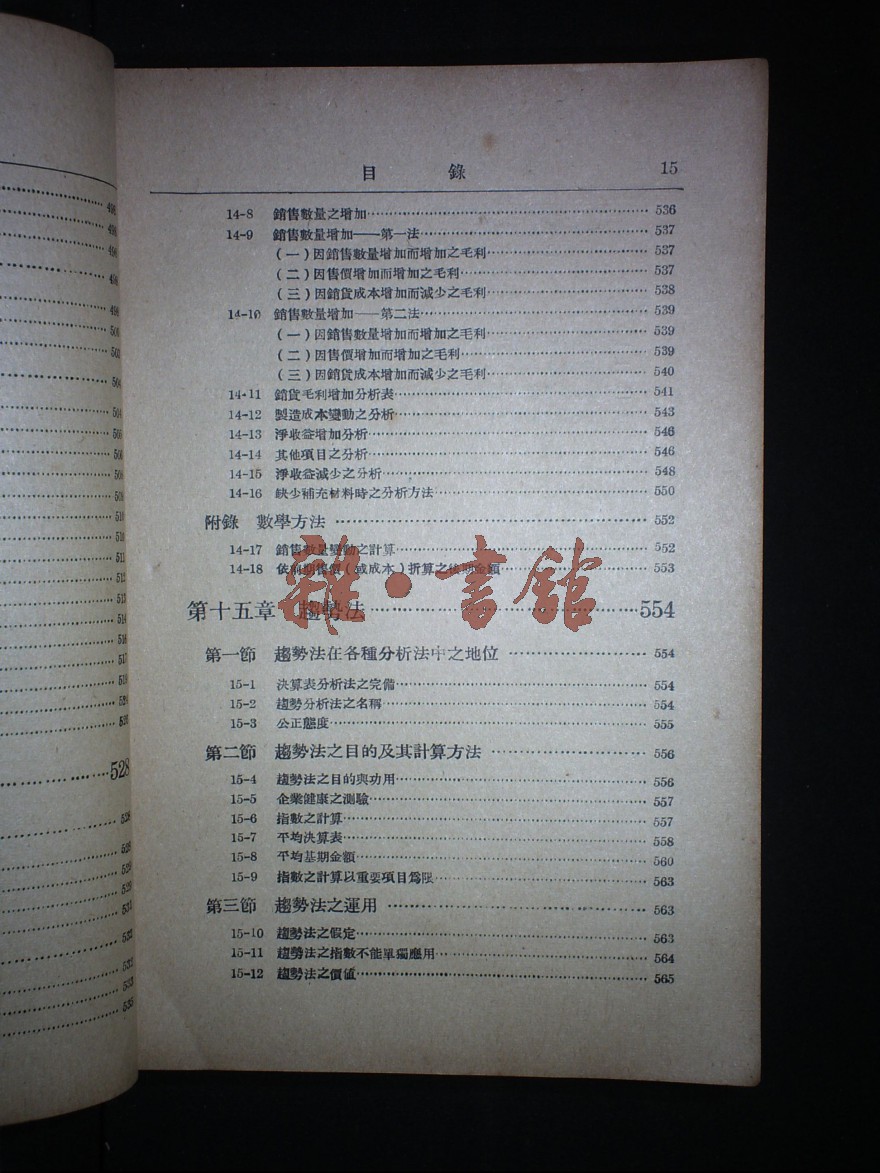 498
498
498
498
499
500
503
504
504
505
506
508
509
510
510
511
512
513
514
516
517
519
528
528
528
528
529
531
532
532
533
535
目錄 15
14-8 銷售數量之增加 536
14-9 銷售數量增加——第一法 537
(一)因銷售數量增加而增加之毛利 537
(二)因售價增加而增加之毛利 537
(三)因銷貨成本增加而減少之毛利 538
14-10 銷售數量增加——第二法 539
(一)因銷售數量增加而增加之毛利 539
(二)因售價增加而增加之毛利 539
(三)因銷貨成本增加而減少之毛利 540
14-11 銷貨毛利增加分析表 541
14-12 製造成本變動之分析 543
14-13 淨收益增加分析 546
14-14 其他項目之分析 546
14-15 淨收益減少之分析 548
14-16 缺少補充材料時之分析方法 550
附錄 數學方法 552
14-17 銷售數量變動之計算 552
14-18 依前期售價(或成本)折算之後期金額 553
雜·書館
第十五章 趨勢法 554
第一節 趨勢法在各種分析法中之地位 554
15-1 決算表分析法之完備 554
15-2 趨勢分析法之名稱 554
15-3 公正態度 555
第二節 趨勢法之目的及其計算方法 556
15-4 趨勢法之目的與功用 556
15-5 企業健康之測驗 557
15-6 指數之計算 557
15-7 平均決算表 558
15-8 平均基期金額 560
15-9 指數之計算以重要項目爲限 563
第三節 趨勢法之運用 563
15-10 趨勢法之假定 563
15-11 趨勢法之指數不能單獨應用 564
15-12 趨勢法之價值 565